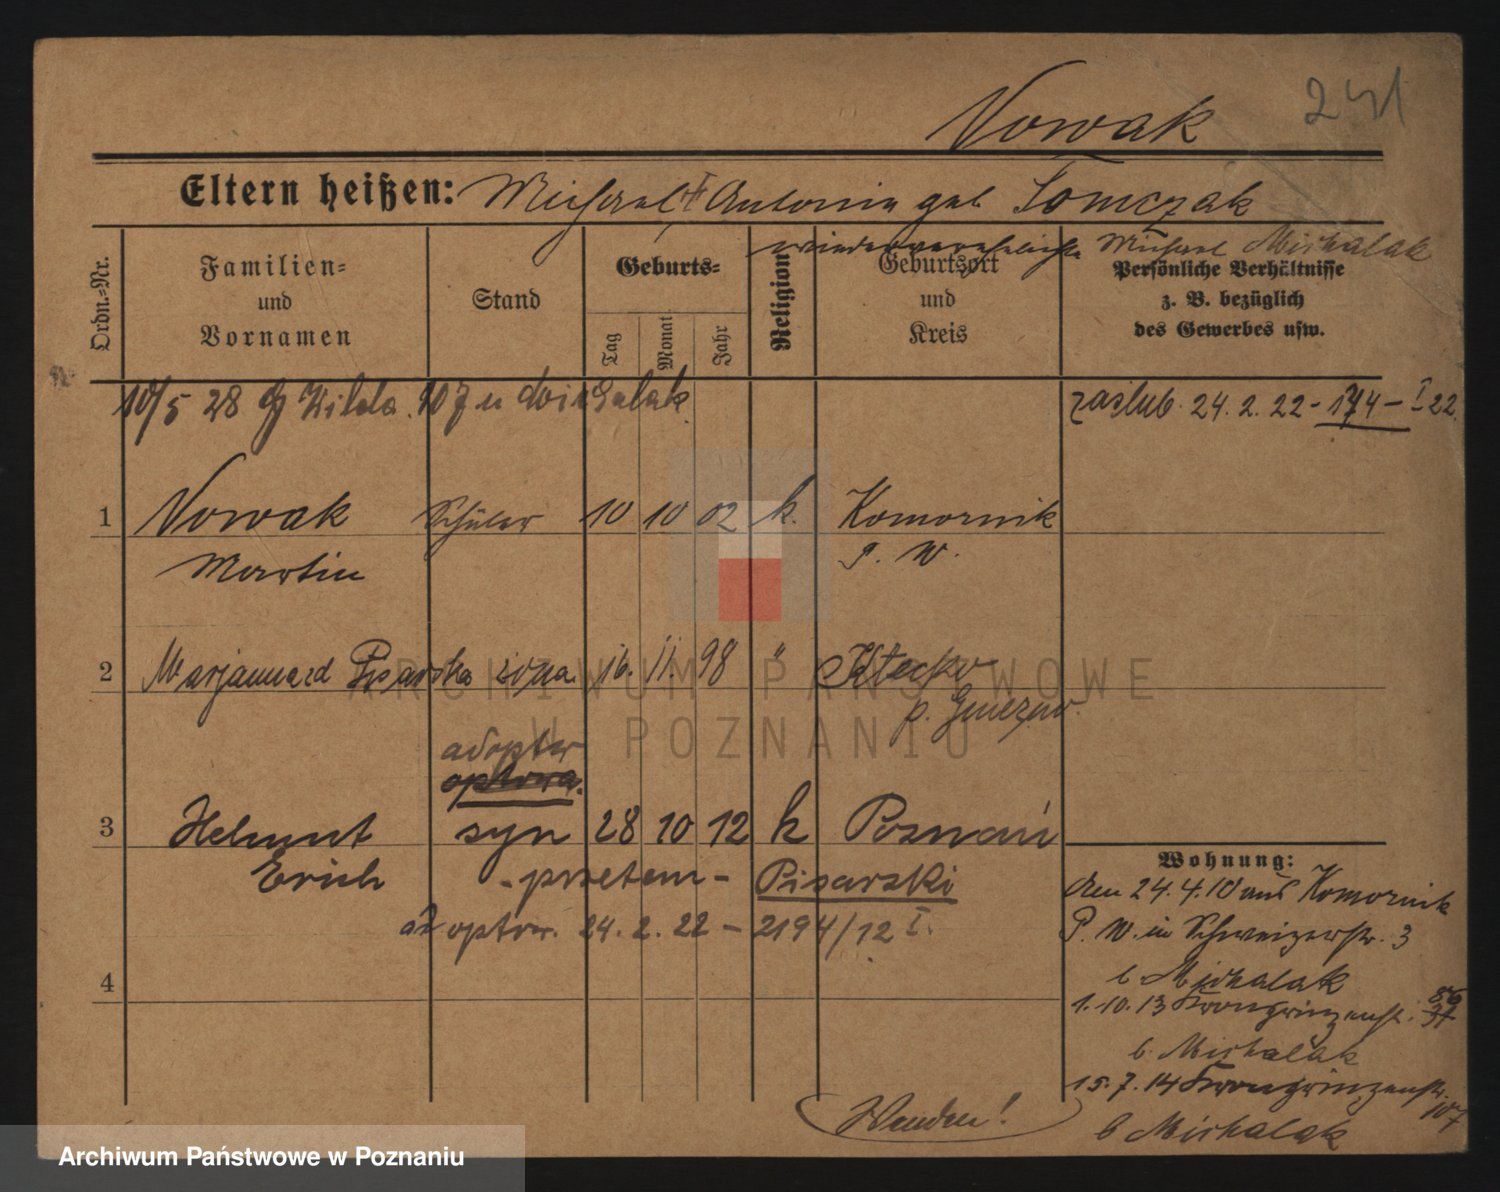 Nowak
241
Eltern heißen: Michael † Antonie geb Tomczak
wiederverehelichte Michael Michalak
Ordn.-Nr.
Familien-
und
Vornamen
Stand
Geburts-
Tag
Monat
Jahr
Religion
Geburtsort
und
Kreis
Persönliche Verhältnisse
z. B. bezüglich
des Gewerbes usw.
10/5 28 Wilda 107 u
zaślub. 24. 2. 22 - 174 - I 22.
1 Nowak Schüler 10 10 02 k. Komornik
Martin P. W.
2 Marjanna zd Pisarska żona 16. 11. 98 "
adopter
3 Helmut syn 28 10 12 k Poznań
Erich - przetem - Pisarski
adoptow. 24. 2. 22 - 2194/12 I.
4
Wohnung:
den 24. 4. 10 aus Komornik
P. W. in Schweizerstr. 3
b. Michalak
1. 10. 13 Kronprinzenst. 86
b. Michalak
15. 7. 14 Kronprinzenstr. 107
b Michalak
Wenden!
ARCHIWUM PAŃSTWOWE
W POZNANIU
Archiwum Państwowe w Poznaniu